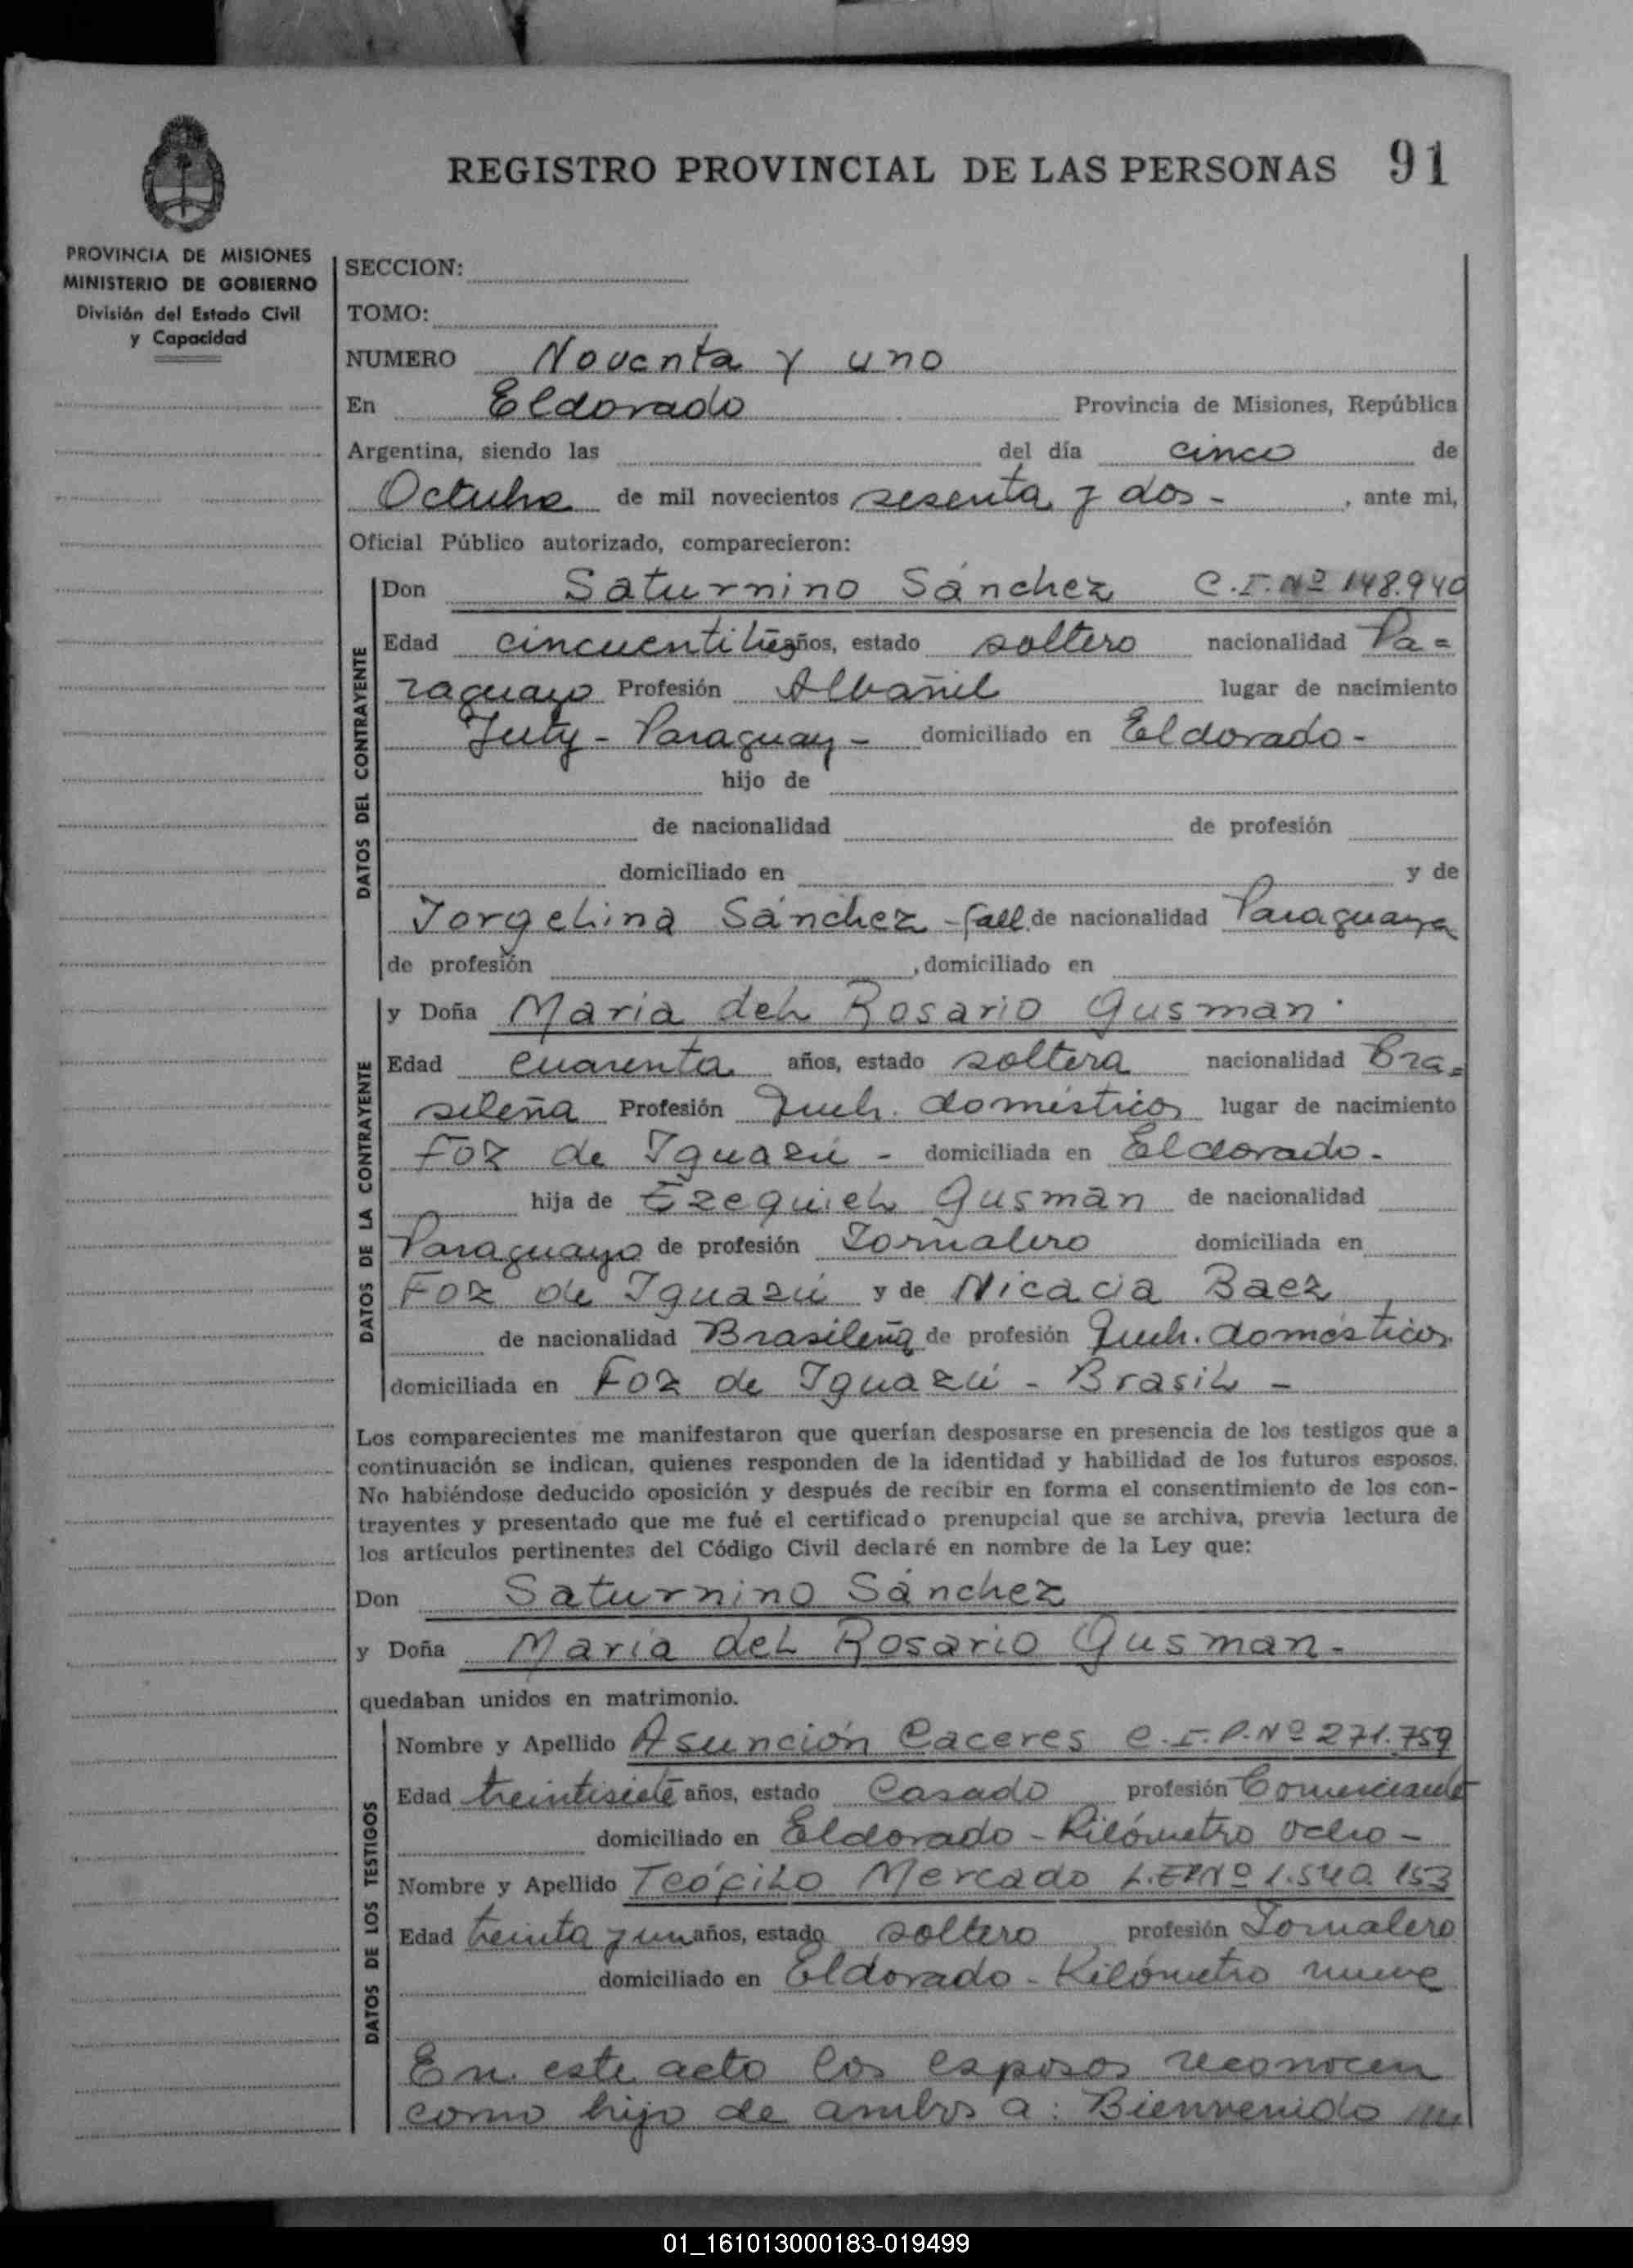 REGISTRO PROVINCIAL DE LAS PERSONAS 91
PROVINCIA DE MISIONES
MINISTERIO DE GOBIERNO
División del Estado Civil
y Capacidad
SECCION:
TOMO:
NUMERO Noventa y uno
En Eldorado Provincia de Misiones, República
Argentina, siendo las del día cinco de
Octubre de mil novecientos sesenta y dos - , ante mi,
Oficial Público autorizado, comparecieron:
DATOS DEL CONTRAYENTE
Don Saturnino Sánchez C.I. Nº 148.940
Edad años, estado soltero nacionalidad Pa=
raguayo Profesión Albañil lugar de nacimiento
Yuty - Paraguay - domiciliado en Eldorado -
hijo de
de nacionalidad de profesión
domiciliado en y de
Jorgelina Sánchez - fall. de nacionalidad Paraguaya
de profesión , domiciliado en
DATOS DE LA CONTRAYENTE
y Doña Maria del Rosario Gusman
Edad cuarenta años, estado soltera nacionalidad Bra=
sileña Profesión Queh. domésticos lugar de nacimiento
Foz de Iguazú - domiciliada en Eldorado -
hija de Ezequiel Gusmán de nacionalidad
Paraguayo de profesión Jornalero domiciliada en
Foz de Iguazú y de Nicacia Baez
de nacionalidad Brasileña de profesión Queh. domésticos
domiciliada en Foz de Iguazú - Brasil -
Los comparecientes me manifestaron que querían desposarse en presencia de los testigos que a
continuación se indican, quienes responden de la identidad y habilidad de los futuros esposos.
No habiéndose deducido oposición y después de recibir en forma el consentimiento de los con-
trayentes y presentado que me fué el certificado prenupcial que se archiva, previa lectura de
los artículos pertinentes del Código Civil declaré en nombre de la Ley que:
Don Saturnino Sánchez
y Doña María del Rosario Gusman -
quedaban unidos en matrimonio.
DATOS DE LOS TESTIGOS
Nombre y Apellido Asunción Caceres C.I.P. Nº 271.759
Edad treintisiete años, estado Casado profesión Comerciante
domiciliado en Eldorado - Kilómetro ocho -
Nombre y Apellido Teófilo Mercado Nº 1.540.153
Edad treinta y un años, estado soltero profesión Jornalero
domiciliado en Eldorado - Kilómetro nueve
En este acto los esposos reconocen
como hijo de ambos a: Bienvenido
01_161013000183-019499